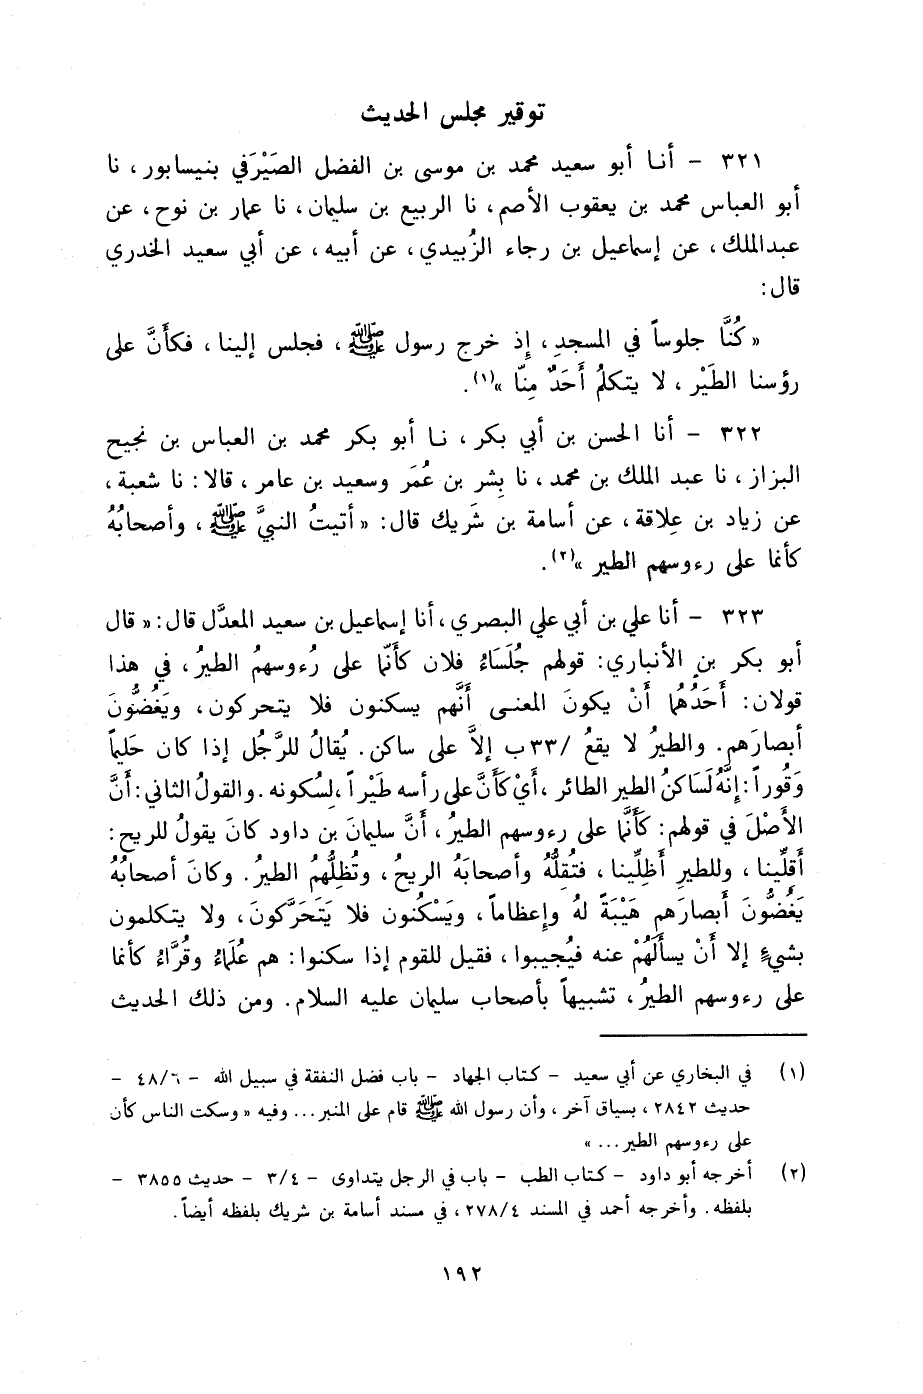 توقير مجلس الحديث
٣٢١ - أنا أبو سعيد محمد بن موسى بن الفضل الصَيْرَفي بنيسابور، نا
أبو العباس محمد بن يعقوب الأصم، نا الربيع بن سليمان، نا عمار بن نوح، عن
عبدالملك، عن إسماعيل بن رجاء الزُبيدي، عن أبيه، عن أبي سعيد الخدري
قال:
« كُنَّا جلوساً في المسجدِ، إذ خرج رسول ﷺ، فجلس إلينا، فكأَنَّ على
رؤسنا الطَيْر، لا يتكلمُ أَحَدٌ مِنّا »(١).
٣٢٢ - أنا الحسن بن أبي بكر، نا أبو بكر محمد بن العباس بن نجيح
البزاز، نا عبد الملك بن محمد، نا بِشر بن عُمَر وسعيد بن عامر، قالا: نا شعبة،
عن زياد بن عِلاقة، عن أسامة بن شَريك قال: « أتيتُ النبيَّ ﷺ، وأصحابُهُ
كأنما على رءوسهم الطير »(٢).
٣٢٣ - أنا علي بن أبي علي البصري، أنا إسماعيل بن سعيد المعدَّل قال: « قال
أبو بكر بن الأنباري: قولهم جُلَسَاءُ فلان كأَنّما على رُءوسهمُ الطيرُ، في هذا
قولان: أَحَدُهُما أَنْ يكونَ المعنى أَنَّهم يسكنون فلا يتحركون، ويَغُضُّونَ
أبصارَهم. والطيرُ لا يقعُ /٣٣ب إلاَّ على ساكن. يُقالُ للرَّجُل إذا كان حَليماً
وَقُوراً: إنَّهُ لَسَاكنُ الطيرِ الطائر، أَيْ كَأَنَّ على رأسه طَيْراً، لِسُكونه. والقولُ الثاني: أَنَّ
الأَصْلَ في قولهم: كَأَنَّما على رءوسهم الطيرُ، أَنَّ سليمانَ بن داود كانَ يقولُ للريح:
أَقلِّينا، وللطيرِ أَظلِّينا، فتُقلُّهُ وأصحابَهُ الريحُ، وتُظلُّهمُ الطيرُ. وكانَ أصحابُهُ
يَغُضُّونَ أَبصارَهم هَيْبَةً لهُ وإعظاماً، ويَسْكُنون فلا يَتَحَرَّكونَ، ولا يتكلمون
بشيءٍ إلا أَنْ يسأَلَهُمْ عنه فيُجيبوا، فقيل للقوم إذا سكنوا: هم عُلَماءُ وقُرَّاءُ كأنما
على رءوسهم الطيرُ، تشبيهاً بأصحاب سليمان عليه السلام. ومن ذلك الحديث
(١) في البخاري عن أبي سعيد - كتاب الجهاد - باب فضل النفقة في سبيل الله - ٤٨/٦ -
حديث ٢٨٤٢، بسياق آخر، وأن رسول الله ﷺ قام على المنبر... وفيه « وسكت الناس كأن
على رءوسهم الطير... »
(٢) أخرجه أبو داود - كتاب الطب - باب في الرجل يتداوى - ٣/٤ - حديث ٣٨٥٥ -
بلفظه. وأخرجه أحمد في المسند ٢٧٨/٤، في مسند أسامة بن شريك بلفظه أيضاً.
١٩٢